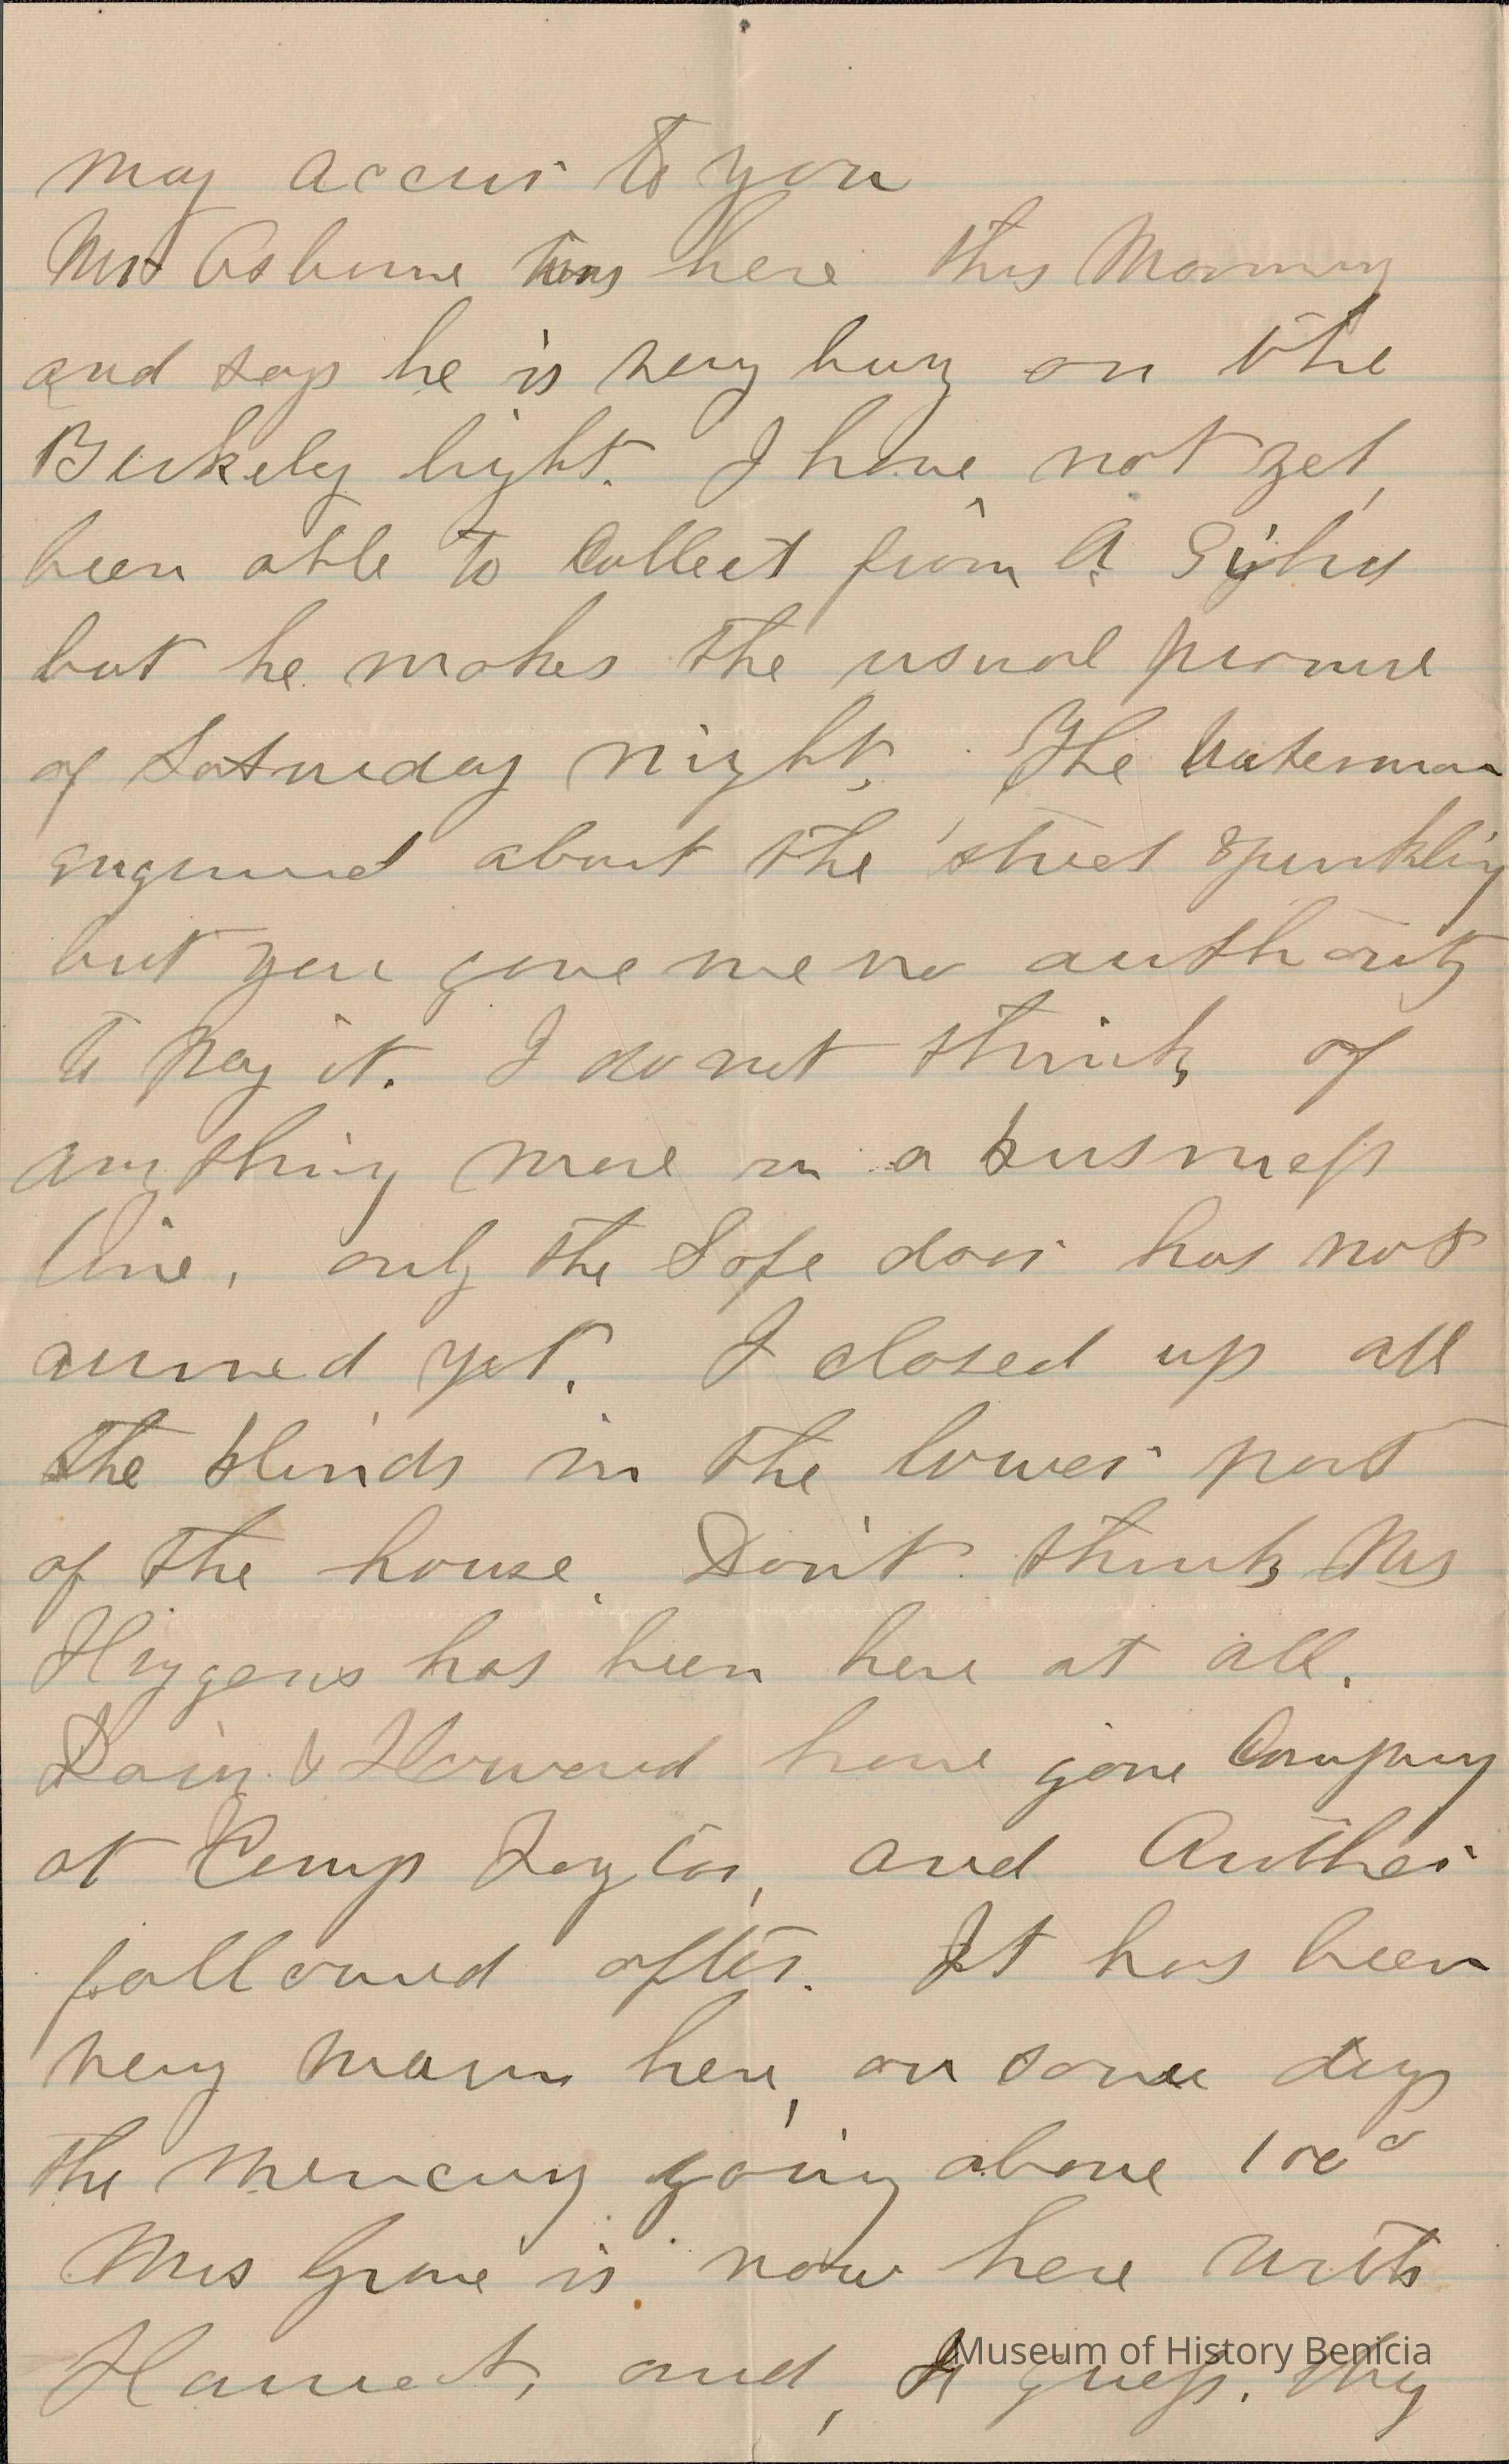 may accur to you
Mr Osburne was here this Morning
and says he is very busy on the
Berkely light. I have not yet
been able to Collect from A
but he makes the usual promise
of Saturday night. The Waterman
enquired about the street sprinkling
but you gave me no authority
to pay it. I do not think of
any thing more in a business
line, only the Safe door has not
arrived yet. I closed up all
the blinds in the lower part
of the house. Don't think Mrs
Hiygens has been here at all.
& Howard have gone Camping
at Camp Taylor, and Arthur
followed after. It has been
very warm here, on some days
the Mercury going above 100°
Mrs Grove is now here with
Harriet, and, I guess. they
Museum of History Benicia